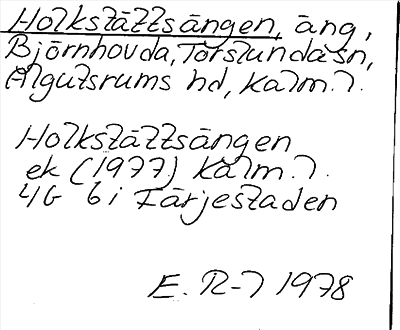 Holkstättsängen, äng,
Björnhovda, Torslunda sn,
Algutsrums hd, Kalm. l.
Holkstättsängen
ek (1977) Kalm. l.
4G 6i Färjestaden
E. R-l 1978